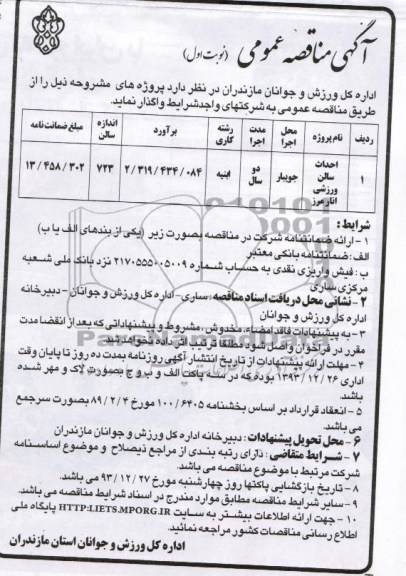 آگهی مناقصه عمومی (نوبت اول)
اداره کل ورزش و جوانان مازندران در نظر دارد پروژه های مشروحه ذیل را از
طریق مناقصه عمومی به شرکتهای واجدشرایط واگذار نماید.
ردیف نام پروژه محل اجرا مدت اجرا رشته کاری برآورد اندازه سالن مبلغ ضمانت نامه
۱ احداث سالن ورزشی انارمرز جویبار دو سال ابنیه ۲/۳۱۹/۴۳۴/۰۸۴ ۷۲۳ ۱۳/۴۵۸/۳۰۲
شرایط :
۱- ارائه ضمانتنامه شرکت در مناقصه بصورت زیر (یکی از بندهای الف یا ب)
الف: ضمانتنامه بانکی معتبر
ب : فیش واریزی نقدی به حساب شماره ۲۱۷۰۵۵۵۰۰۵۰۰۹ نزد بانک ملی شعبه
مرکزی ساری
۲- نشانی محل دریافت اسناد مناقصه : ساری- اداره کل ورزش و جوانان - دبیرخانه
اداره کل ورزش و جوانان
۳- به پیشنهادات فاقد امضاء، مخدوش، مشروط و پیشنهاداتی که بعد از انقضا مدت
مقرر در فراخوان واصل شود مطلقا ترتیب اثر داده نخواهد شد.
۴- مهلت ارائه پیشنهادات از تاریخ انتشار آگهی روزنامه بمدت ده روز تا پایان وقت
اداری ۱۳۹۳/۱۲/۲۶ بوده که در سه پاکت الف و ب و ج بصورت لاک و مهر شده
باشد.
۵- انعقاد قرارداد بر اساس بخشنامه ۱۰۰/۶۴۰۵ مورخ ۸۹/۲/۴ بصورت سرجمع
می باشد.
۶- محل تحویل پیشنهادات : دبیرخانه اداره کل ورزش و جوانان مازندران
۷- شرایط متقاضی : دارای رتبه بندی از مراجع ذیصلاح و موضوع اساسنامه
شرکت مرتبط با موضوع مناقصه می باشد.
۸- تاریخ بازگشایی پاکتها روز چهارشنبه مورخ ۹۳/۱۲/۲۷ می باشد.
۹- سایر شرایط مناقصه مطابق موارد مندرج در اسناد شرایط مناقصه می باشد.
۱۰- جهت ارائه اطلاعات بیشتر به سایت HTTP:LIETS.MPORG.IR پایگاه ملی
اطلاع رسانی مناقصات کشور مراجعه نمائید.
اداره کل ورزش و جوانان استان مازندران